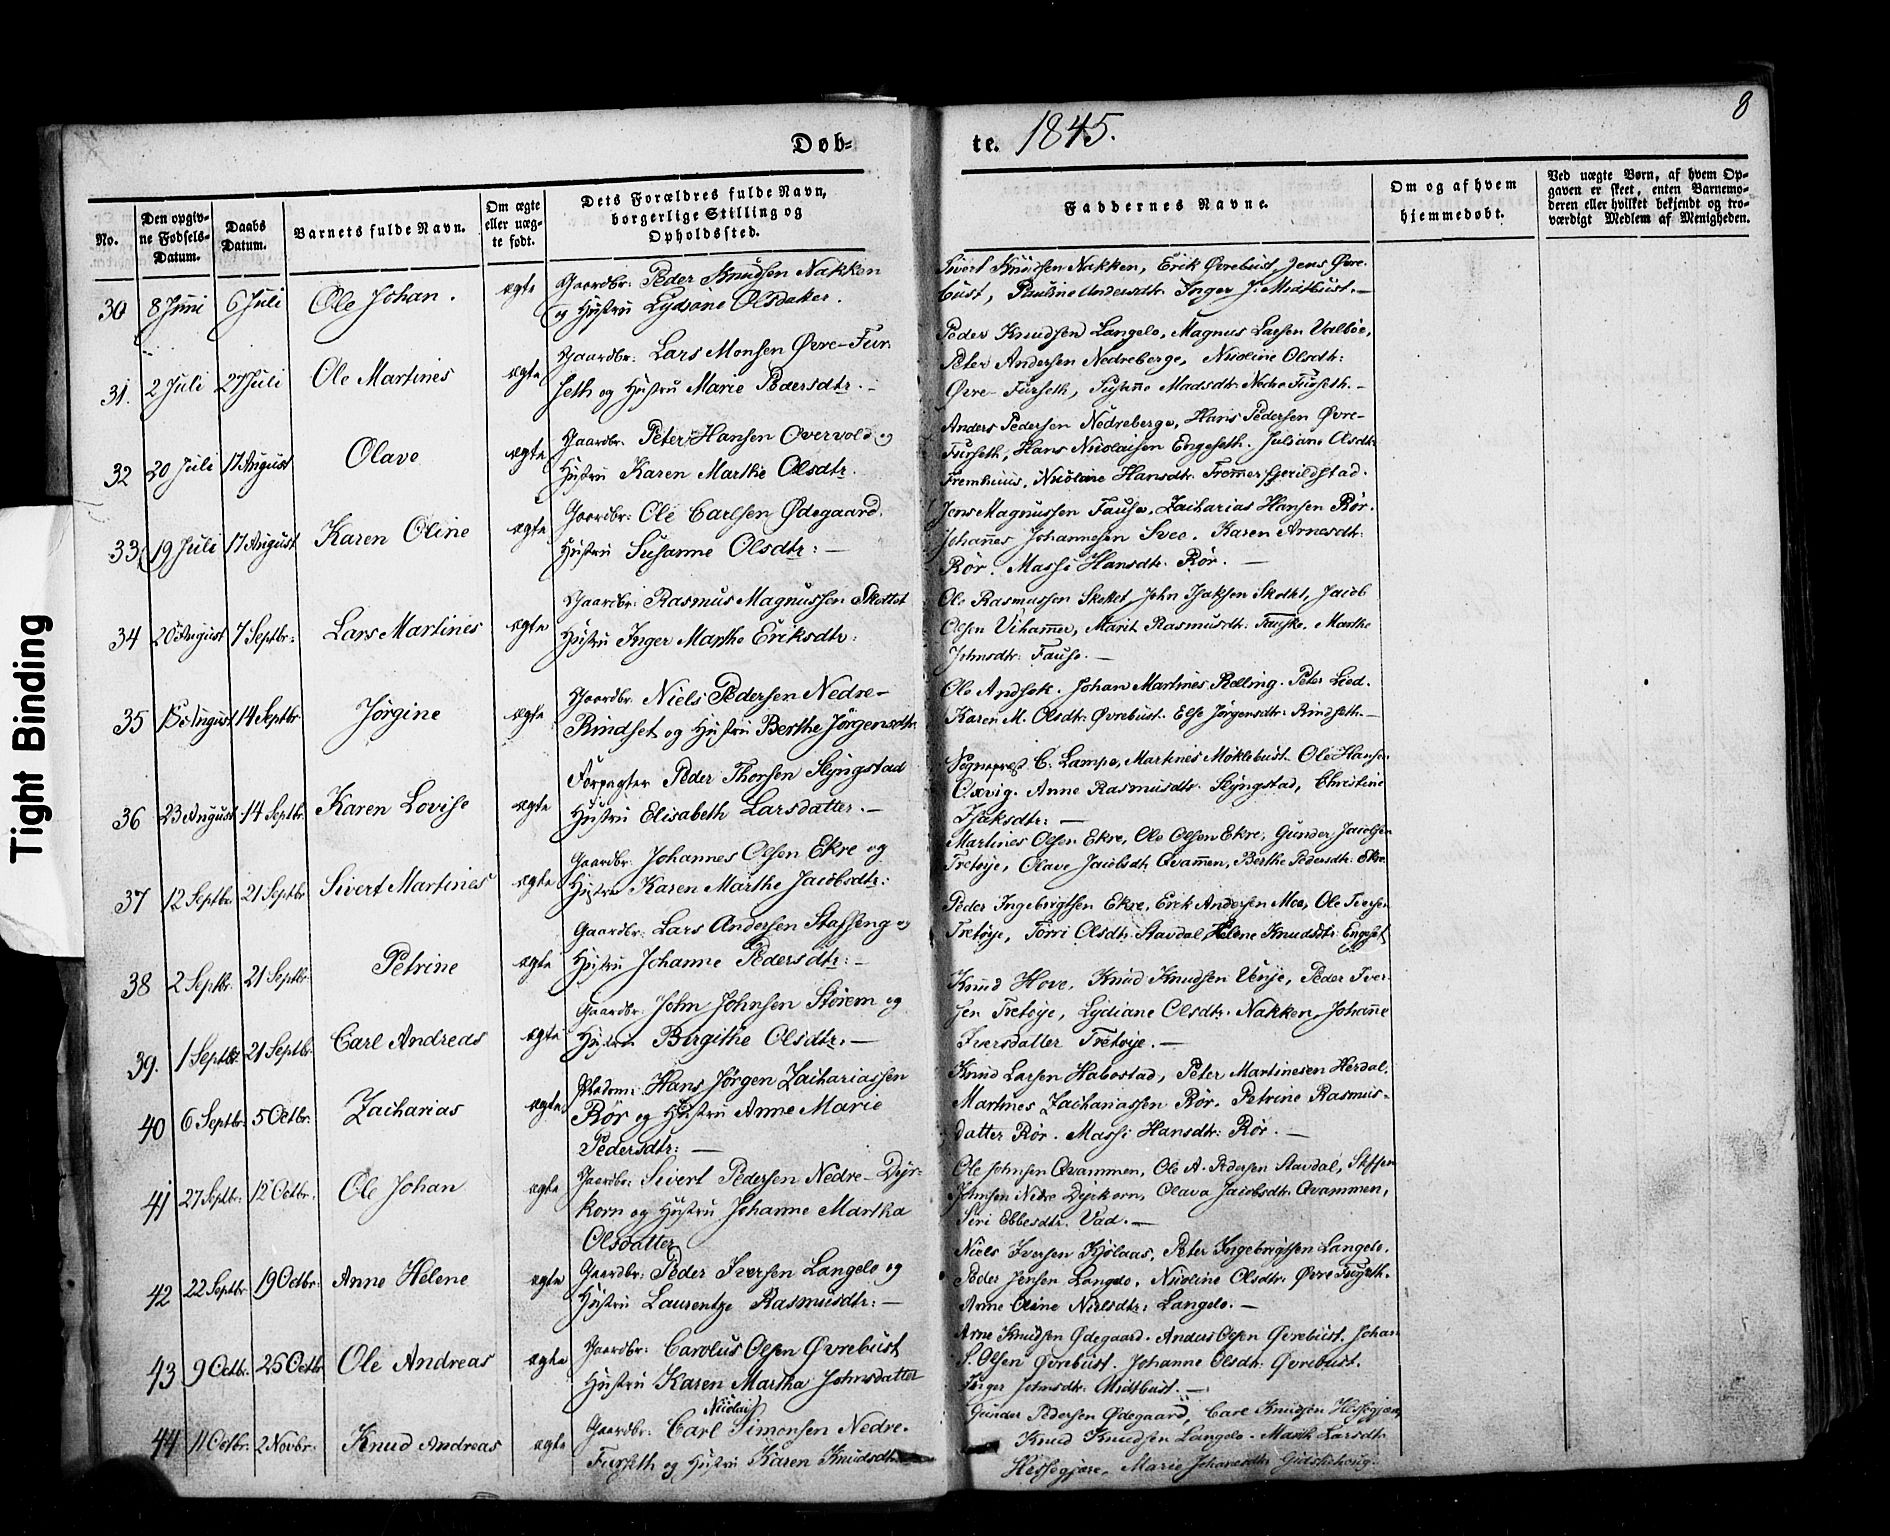 8
Døb-
te. 1845.
No.
Den opgiv-
ne Fødsels-
Datum.
Daabs
Datum.
Barnets fulde Navn.
Om ægte
eller uæg-
te født.
Dets Forældres fulde Navn,
borgerlige Stilling og
Opholdssted.
Faddernes Navne.
Om og af hvem
hjemmedøbt.
Ved uægte Børn, af hvem Op-
gaven er skeet, enten Barnemo-
deren eller hvilket bekjendt og tro-
værdigt Medlem af Menigheden.
30 8 Juni 6 Juli Ole Johan. ægte
Gaardbr: Peder Knudsen Nakken
og Hustru Lydiane Olsdatter.
Sivert Knudsen Nakken, Erik Øvrebust, Jens Øvre-
bust, Pauline Andersdtr. Inger J. Midtbust.—
31. 2 Juli 27 Juli Ole Martines ægte
Gaardbr: Lars Monsen Øvre-Fur-
seth og Hustru Marie Pedersdtr.—
Peder Knudsen Langelo, Magnus Larsen Valboe,
Peter Andersen Nedreberge, Nicoline Olsdtr:
Øvre-Furseth, Susanne Madsdtr. Nedre Furseth.—
32 20 Juli 17 August Olave ægte
Gaardbr. Peter Hansen Overvold og
Hustru Karen Marthe Olsdtr.
Anders Pedersen Nedreberge, Hans Pedersen Øvre-
Furseth, Hans Nicolaisen Engeseth. Juliane Olsdtr
Fremhuus, Nicoline Hansdtr.
33. 19 Juli 17 August Karen Oline ægte
Gaardbr: Ole Carlsen Ødegaard.
Hustru Susanne Olsdtr:—
Jens Magnussen Fause, Zacharias Hansen Rør.
Johannes Johannesen Svee. Karen Arnesdtr:
Rør. Massi Hansdtr. Rør.—
34 20 August 7 Septbr: Lars Martines ægte
Gaardbr: Rasmus Magnussen Skottet
Hustru Inger Marthe Eriksdtr:
Ole Rasmussen Skottet, John Isaksen Skottet, Jacob
Olsen Vihammer, Marit Rasmusdtr. Fauske. Marthe
Johnsdtr: Fause.—
35 August 14 Septbr Jørgine ægte
Gaardbr. Niels Pedersen Nedre-
Rindset og Hustru Berthe Jørgensdtr.
Ole Andsok. Johan Martines Rølling. Peter Lied.
Karen M. Olsdtr. Øvrebust. Else Jørgensdtr. Rindseth.—
36 23 August 14 Septbr. Karen Lovise ægte
Forpagter Peder Thorsen Slyngstad
Hustru Elisabeth Larsdatter.—
Sognepræst C. Lampe, Martines Moklebust. Ole Hansen
Oxvig. Anne Rasmusdtr. Slyngstad, Christine
Isaksdtr:—
37 12 Septbr. 21 Septbr Sivert Martines ægte
Gaardbr. Johannes Olsen Ekre og
Hustru Karen Marthe Jacobsdtr:
Martines Olsen Ekre, Ole Olsen Ekre, Gunder Jacobsen
Tretøye, Olave Jacobsdtr. Qvammen, Berthe Pedersdtr. Ekre
38 2 Septbr. 21 Septbr. Petrine ægte
Gaardbr: Lars Andersen Stafseng og
Hustru Johanne Pedersdtr:—
Peder Ingebrigtsen Ekre, Erik Andersen Moe, Ole Iversen
Tretøye, Torri Olsdtr. Stavdal, Helene Knudsdtr. Engeset
39. 1 Septbr 21 Septbr Carl Andreas ægte
Gaardbr: John Johnsen Størem og
Hustru Birgithe Olsdtr.—
Knud Hove, Knud Knudsen Venje, Peder Iver-
sen Tretøye, Lydiane Olsdtr. Nakken, Johanne
Iversdatter Tretøye.—
40 6 Septbr: 5 Octbr: Zacharias ægte
Hans Jørgen Zachariassen
Rør og Hustru Anne Marie
Pedersdtr:—
Knud Larsen Habostad, Peter Martinesen Herdal.
Martines Zachariassen Rør. Petrine Rasmus-
datter Rør. Massi Hansdtr: Rør.—
41 27 Septbr: 12 Octbr. Ole Johan ægte
Gaardbr: Sivert Pedersen Nedre-Dyr-
korn og Hustru Johanne Martha
Olsdatter
Ole Johnsen Qvammen, Ole A. Pedersen Stavdal, Steffen
Johnsen Nedre Dyrkorn, Olava Jacobsdtr. Qvammen,
Siri Ebbesdtr. Vad.—
42 22 Septbr 19 Octbr: Anne Helene ægte
Gaardbr: Peder Iversen Langelo og
Hustru Laurentze Rasmusdtr:—
Niels Iversen Kjølaas, Peter Ingebrigtsen Langelo.
Peder Jensen Langelo, Nicoline Olsdtr: Øvre Furseth.
Anne Oline Nielsdtr: Langelo.—
43 9 Octbr. 26 Octbr Ole Andreas ægte
Gaardbr: Carolus Olsen Øvrebust
Hustru Karen Martha Johnsdatter
Arne Knudsen Ødegaard. Anders Olsen Øvrebust. Johan
S. Olsen Øvrebust. Johanne Olsdtr: Øvrebust.
Inger Johnsdtr. Midtbust.—
44 11 Octbr. 2 Novbr. Knud Andreas ægte
Nicolai
Gaardbr: Carl Simonsen Nedre-
Furseth og Hustru Karen Knudsdtr.
Gunder Pedersen Ødegaard, Carl Knudsen
Knud Knudsen Langelo. Marth Larsdtr.
Hessegjære, Marie Johanesdtr
Tight Binding